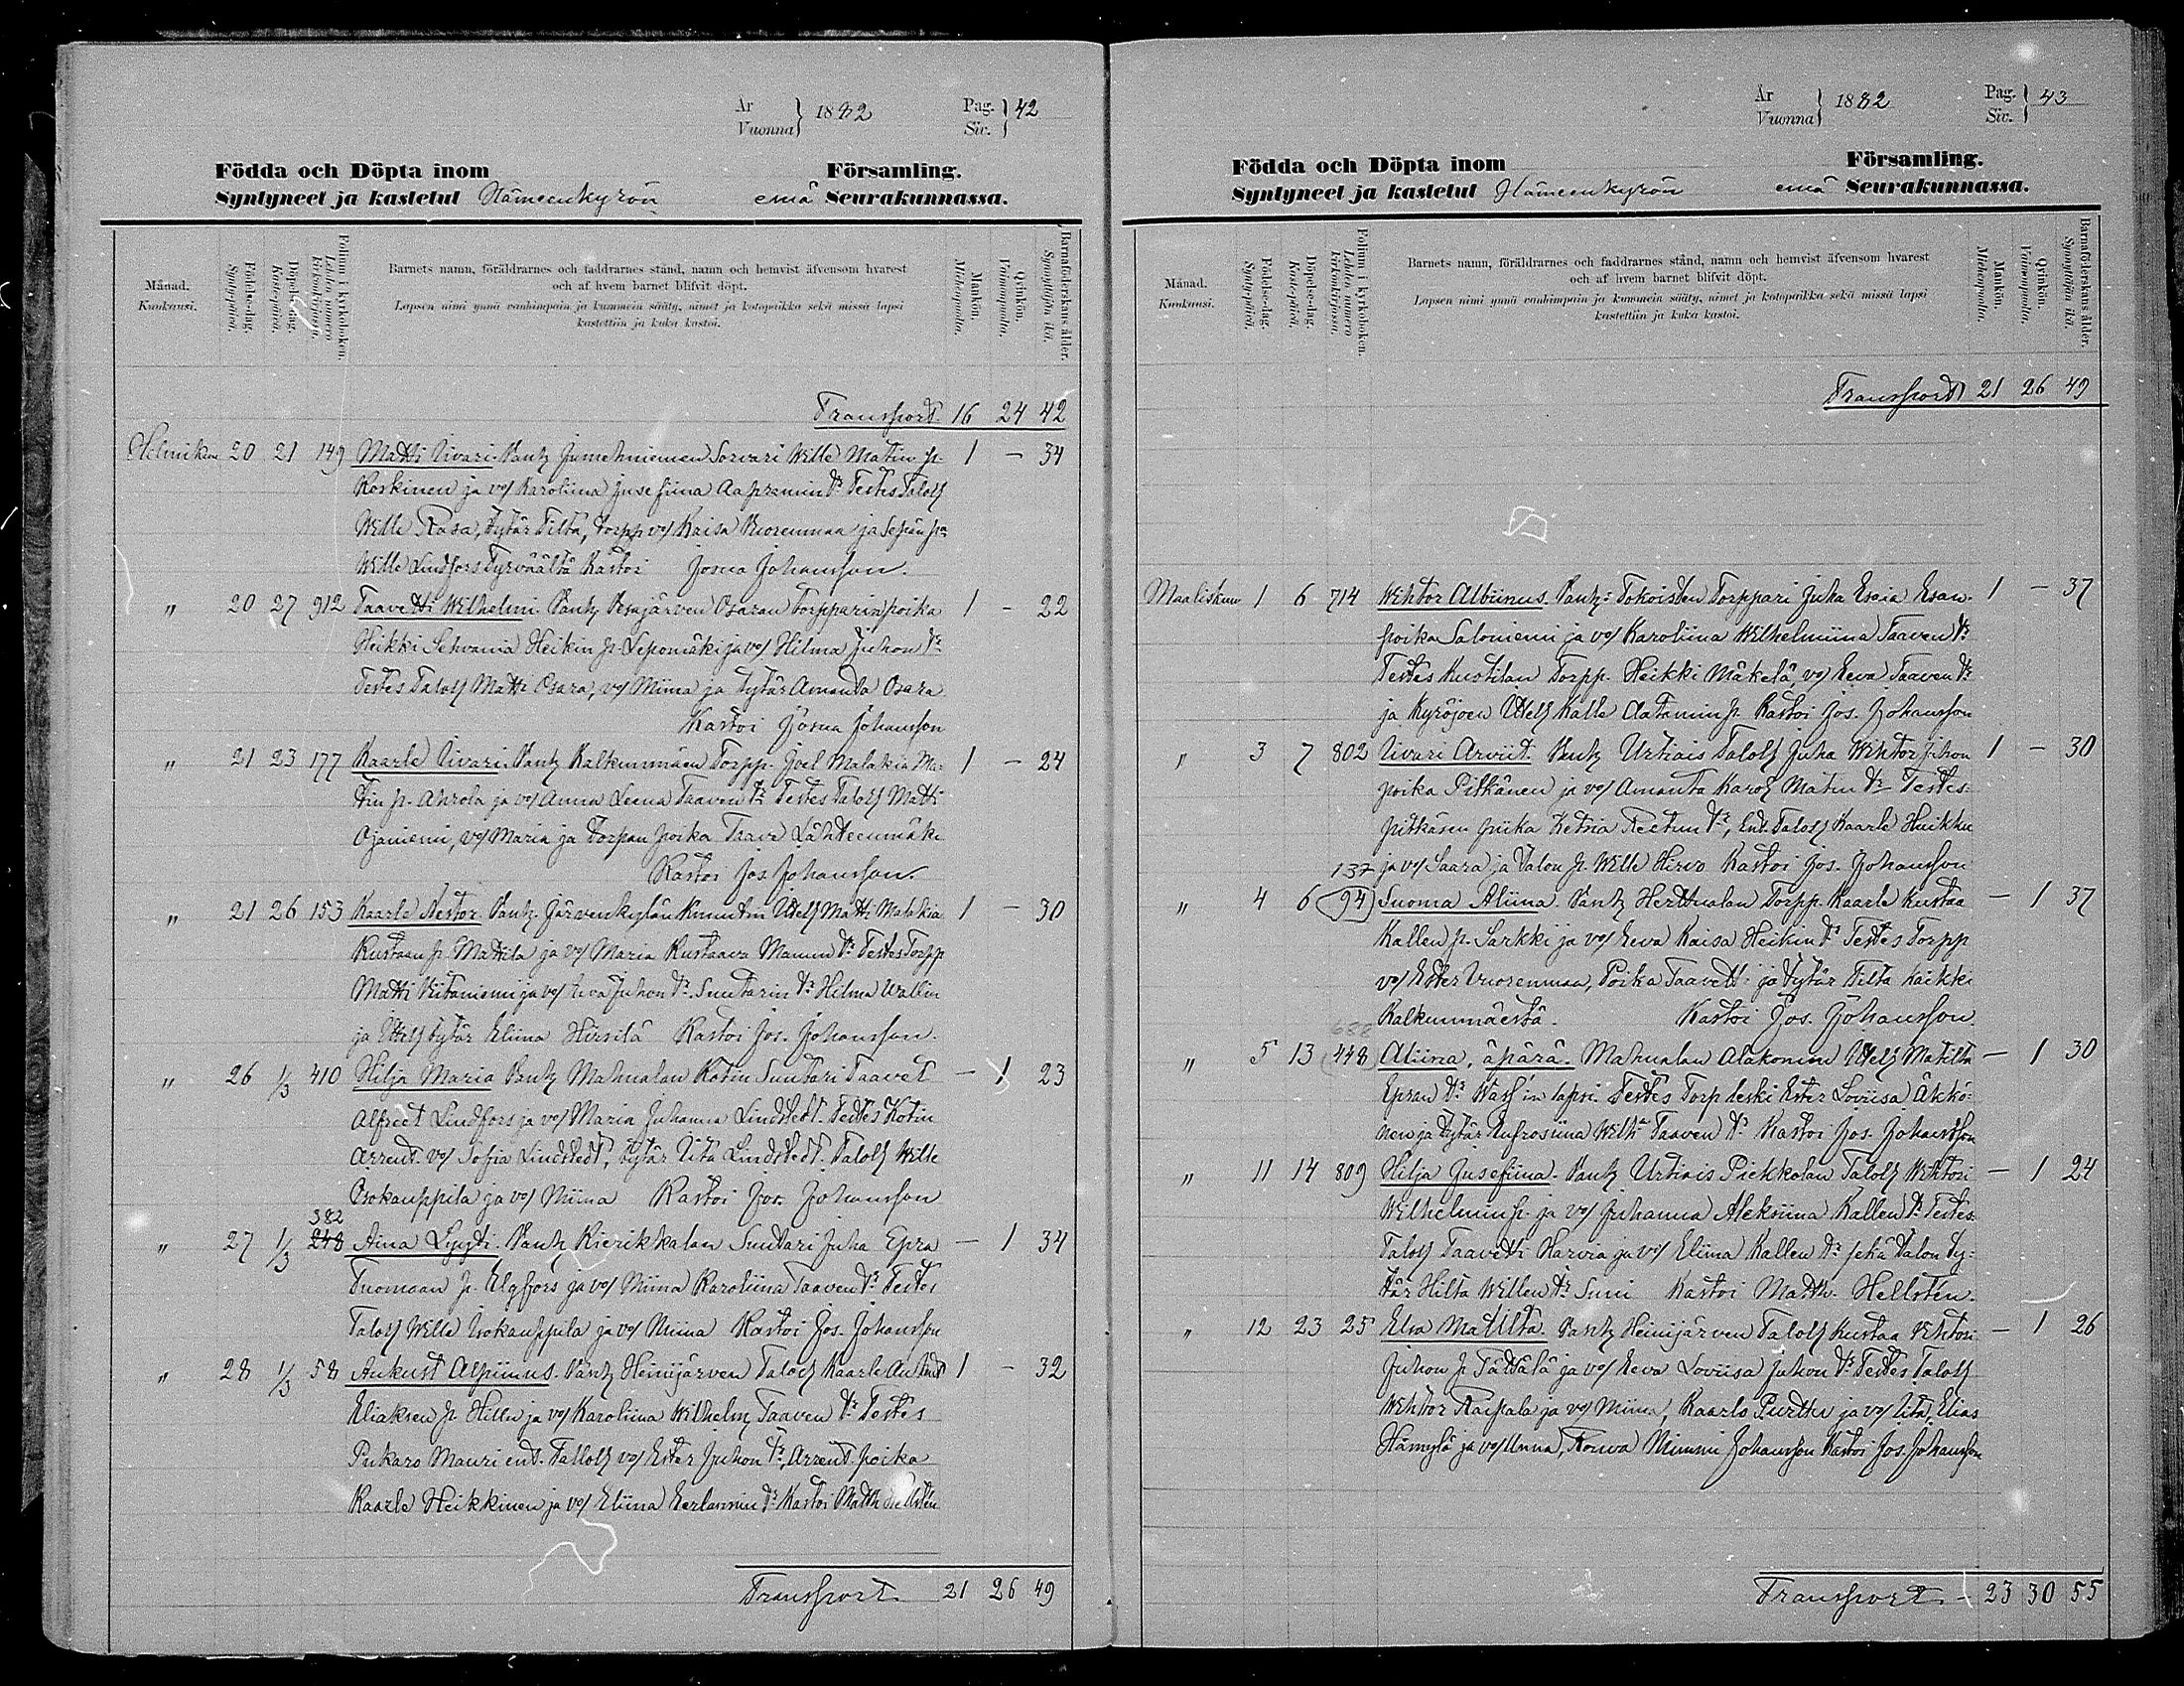 År
Vuonna } 1882 Pag.
Siv. } 42
Födda och Döpta inom Församling.
Syntyneet ja kastetut Hämeenkyrön emä Seurakunnassa.
Månad.
Kuukausi.
Födelse-dag.
Syntypäivä.
Döpelse-dag.
Kastepäivä.
Folium i kyrkoboken.
Lehden numero kirkonkirjassa.
Barnets namn, föräldrarnes och faddrarnes stånd, namn och hemvist äfvensom hvarest
och af hvem barnet blifvit döpt.
Lapsen nimi ynnä vanhimpain ja kummein sääty, nimet ja kotopaikka sekä missä lapsi
kastettiin ja kuka kastoi.
Mankön.
Miehenpuolia.
Qvinkön.
Vaimonpuolia.
Barnaföderskans ålder.
Synnyttäjän ikä.
Transport 16 24 42
Helmikuu 20 21 149 Matti Iivari. Vanh Jumehniemen Sorvari Wille Matin p. 1 — 34
Koskinen ja vo/ Karoliina Jusefiina Aapramin tr Testes Taloll
Wille Rasa, tytär Tilta, torpp vo/ Kaisa Vuorenmaa ja Sepän pa
Wille Lindfors Tyrväältä Kastoi Josua Johansson.
" 20 27 912 Taavetti Wilhelmi Vanh Vesajärven Osaran Torpparin poika 1 - 22
Heikki Sehvania Heikin p. Leponiäki ja vo/ Hilma Juhon tr
Testes Taloll Matti Osara, vo/ Miina ja tytär Amanda Osara
Kastoi Josua Johansson
" 21 23 177 Kaarle Iivari. Vanh Kalkunmäen Torpp. Joel Malakia Ma- 1 — 24
tin p. Ahrola ja vo/ Anna Leena Taaven tr Testes Taloll Matti
Ojaniemi, vo/ Maria ja Torpan poika Taave Lähteenmäki
Kastoi Jos Johansson.
" 21 26 153 Kaarle Nestor. Vanh. Järvenkylän Knuutin Itsell Matti Malakia 1 — 30
Kustaan p. Mattila ja vo/ Maria Kustaava Mannun tr Testes Torpp
Matti Viitaniemi ja vo/ Eeva Juhon tr, Suutarin tr Hilma Wallin
ja Itsell tytär Eliina Hirsilä Kastoi Jos. Johansson.
" 26 1/3 410 Hilja Maria Vanh Mahnalan Kotin Suutari Taavet — 1 23
Alfredt Lindfors ja vo/ Maria Juhanna Lindstedt. Testes Kotin
Arrend. vo/ Sofia Lindstedt, tytär Iita Lindstedt. Taloll Wille
Isokauppila ja vo/ Miina Kastoi Jos. Johansson
382
" 27 1/3 248 Aina Lyyti. Vanh Kierikkalan Suutari Juha Epra — 1 34
Tuomaan p. Elgfors ja vo/ Miina Karoliina Taaven tr Testes
Taloll Wille Isokauppila ja vo/ Miina Kastoi Jos. Johansson
" 28 1/3 58 Aukust Alpiinus. Vanh Heinijärven Taloll Kaarle Aukust 1 — 32
Eliaksen p. Hillu ja vo/ Karoliina Wilhelm Taaven tr Testes
Pukaro Mauri ent. Talloll vo/ Ester Juhon tr, Arrend. poika
Kaarle Heikkinen ja vo/ Eliina Eerlannin tr Kastoi Matth Hellstén
Transport 21 26 49
År
Vuonna } 1882 Pag.
Siv. } 43
Födda och Döpta inom Församling.
Syntyneet ja kastetut Hämeenkyrön emä Seurakunnassa.
Månad.
Kuukausi.
Födelse-dag.
Syntypäivä.
Döpelse-dag.
Kastepäivä.
Folium i kyrkoboken.
Lehden numero kirkonkirjassa.
Barnets namn, föräldrarnes och faddrarnes stånd, namn och hemvist äfvensom hvarest
och af hvem barnet blifvit döpt.
Lapsen nimi ynnä vanhimpain ja kummein sääty, nimet ja kotopaikka sekä missä lapsi
kastettiin ja kuka kastoi.
Mankön.
Miehenpuolia.
Qvinkön.
Vaimonpuolia.
Barnaföderskans ålder.
Synnyttäjän ikä.
Transport 21 26 49
Maaliskuu 1 6 714 Wihtor Albiinus. Vanh: Tokoisten Torppari Juha Esaia Esan- 1 — 37
poika Saloniemi ja vo/ Karoliina Wilhelmiina Taaven tr
Testes Kuotilan Torpp. Heikki Mäkelä, vo/ Eeva Taaven tr
ja Kyröjoen Itsell Kalle Aatamin p. Kastoi Jos. Johansson
" 3 7 802 Iivari Arviit. Vanh Urtiais Taloll Juha Wihtor Juhon 1 — 30
poika Pitkänen ja vo/ Amanta Karol Matin tr Testes
Pitkäsen piika Ketria Reetun tr, Ent. Taloll Kaarle Huikku
137 ja vo/ Saara ja talon p. Wille Hirvo Kastoi Jos. Johansson
" 4 6 94 Suoma Aliina. Vanh Herttualan Torpp. Kaarle Kustaa — 1 37
Kallen p. Sarkki ja vo/ Eeva Kaisa Heikin tr Testes Torpp
vo/ Ester Vuorenmaa, Poika Taavetti ja tytär Tilta kaikki
Kalkunmäestä. Kastoi Jos. Johansson.
688
" 5 13 448 Aliina, äpärä. Mahnalan Alakonin Itsell Matilta — 1 30
Epran tr lapsi. Testes Torp leski Ester Loviisa Äkkö-
nen ja tytär Eufrosiina Wilh Taaven tr Kastoi Jos. Johansson
" 11 14 809 Hilja Jusefiina. Vanh Urtiais Piekkolan Taloll Wihtori — 1 24
Wilhelmin p. ja vo/ Juhanna Aleksiina Kallen tr Testes
Taloll Taavetti Harvia ja vo/ Eliina Kallen tr sekä talon ty-
tär Hilta Willen tr Suni Kastoi Matth. Hellstén.
" 12 23 25 Elsa Matilta. Vanh Heinijärven Taloll Kustaa Vihtori — 1 26
Juhon p. Tättälä ja vo/ Eeva Loviisa Juhon tr Testes Taloll
Wihtor Raipala ja vo/ Miina, Kaarlo Purttu ja vo/ Iita, Elias
Hämylä ja vo/ Anna, Rouva Mimmi Johansson Kastoi Jos. Johansson
Transport 23 30 55